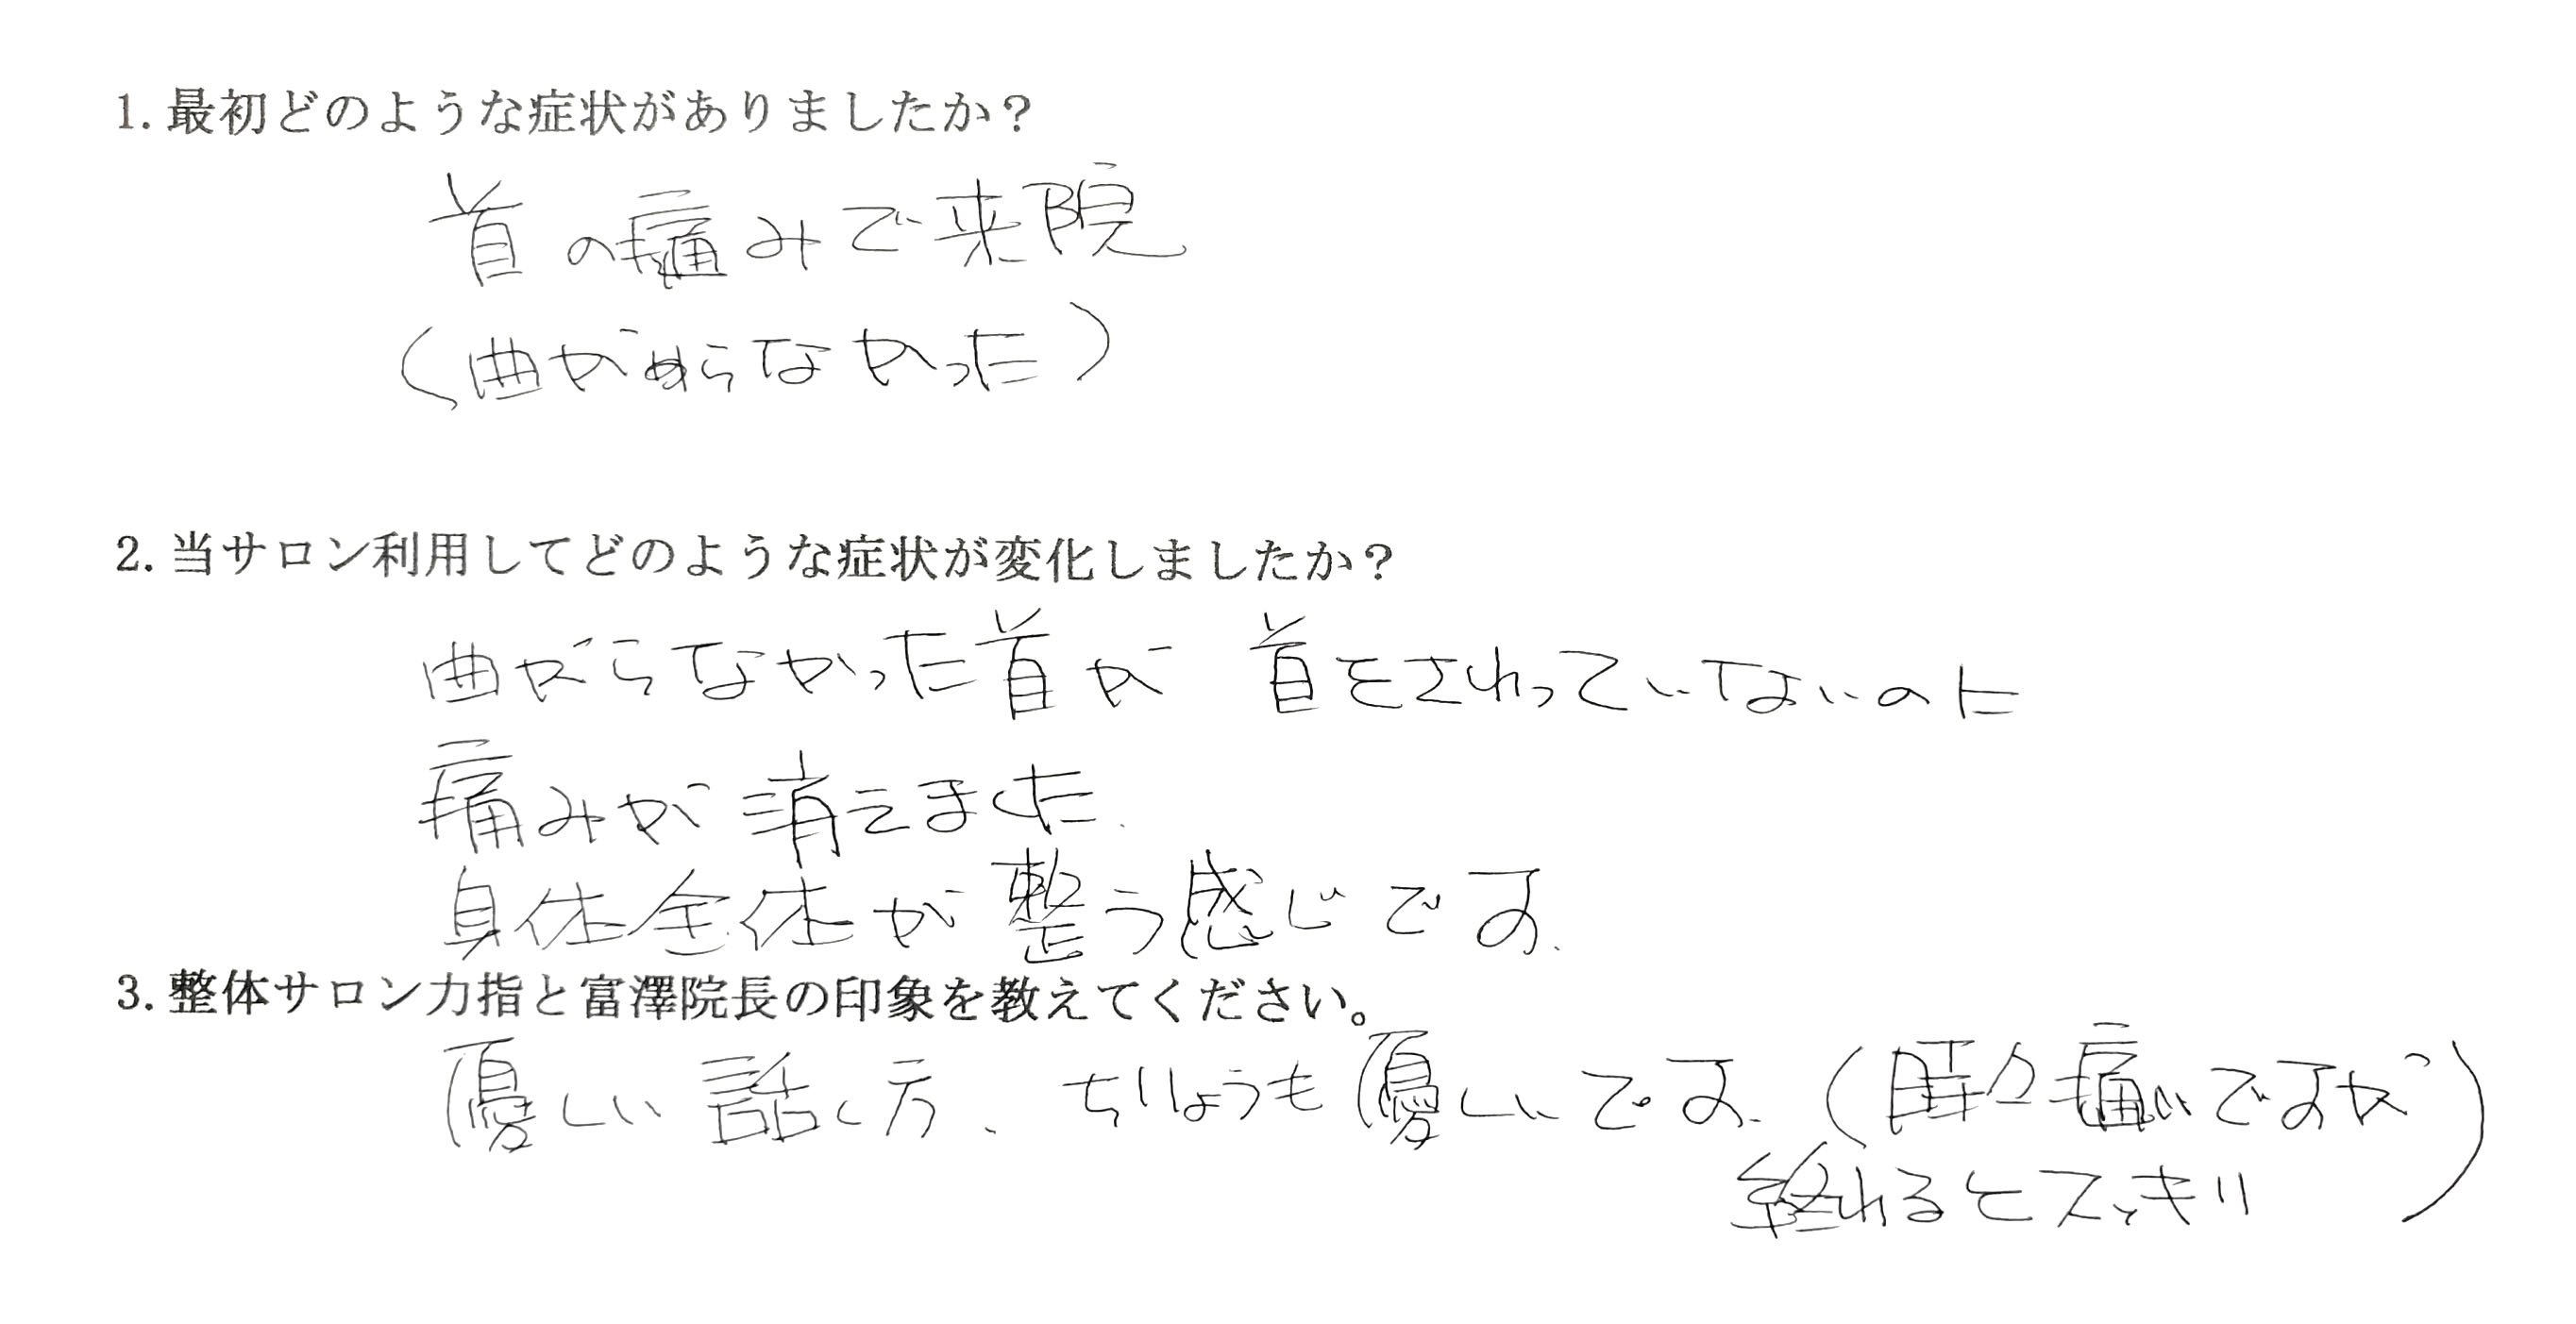 1. 最初どのような症状がありましたか？
首の痛みで来院
（曲がらなかった）
2. 当サロン利用してどのような症状が変化しましたか？
曲がらなかった首が 首をさわっていないのに
痛みが消えました.
身体全体が整う感じです.
3. 整体サロン力指と富澤院長の印象を教えてください。
優しい話し方. ちりょうも優しいです.（時々痛いですが
終わるとスッキリ）